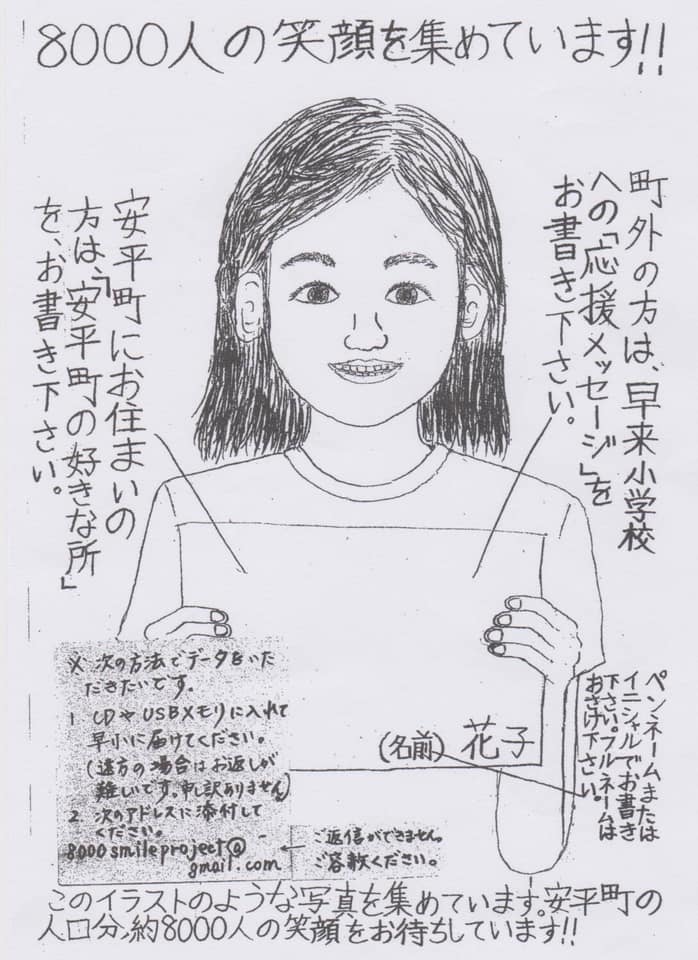 8000人の笑顔を集めています!!
町外の方は、早来小学校
への「応援メッセージ」を
お書き下さい。
安平町にお住まいの
方は、「安平町の好きな所」
を、お書き下さい。
※ 次の方法でデータをいた
だきたいです。
1 CDやUSBメモリに入れて
早小に届けてください。
(遠方の場合はお返しが
難しいです。申し訳ありません)
2 次のアドレスに添付して
ください。
8000smileproject@
gmail.com
ご返信ができません。
ご容赦ください。
(名前) 花子
ペンネームまたは
イニシャルでお書き
下さい。フルネームは
おさけ下さい。
このイラストのような写真を集めています。安平町の
人口分、約8000人の笑顔をお待ちしています!!